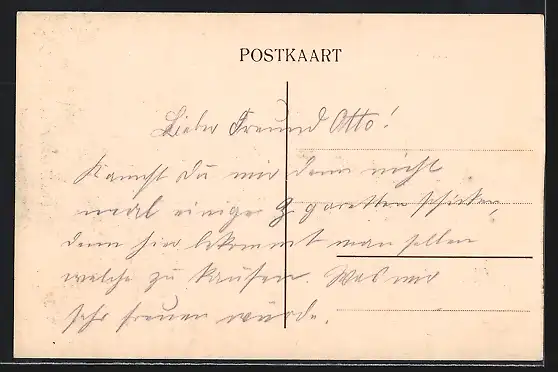 POSTKAART
Lieber Freund Otto!
Kannst du mir denn nicht
mal einige Zigaretten schicken,
denn hier bekommt man selten
welche zu kaufen. Was mir
sehr freuen würde.